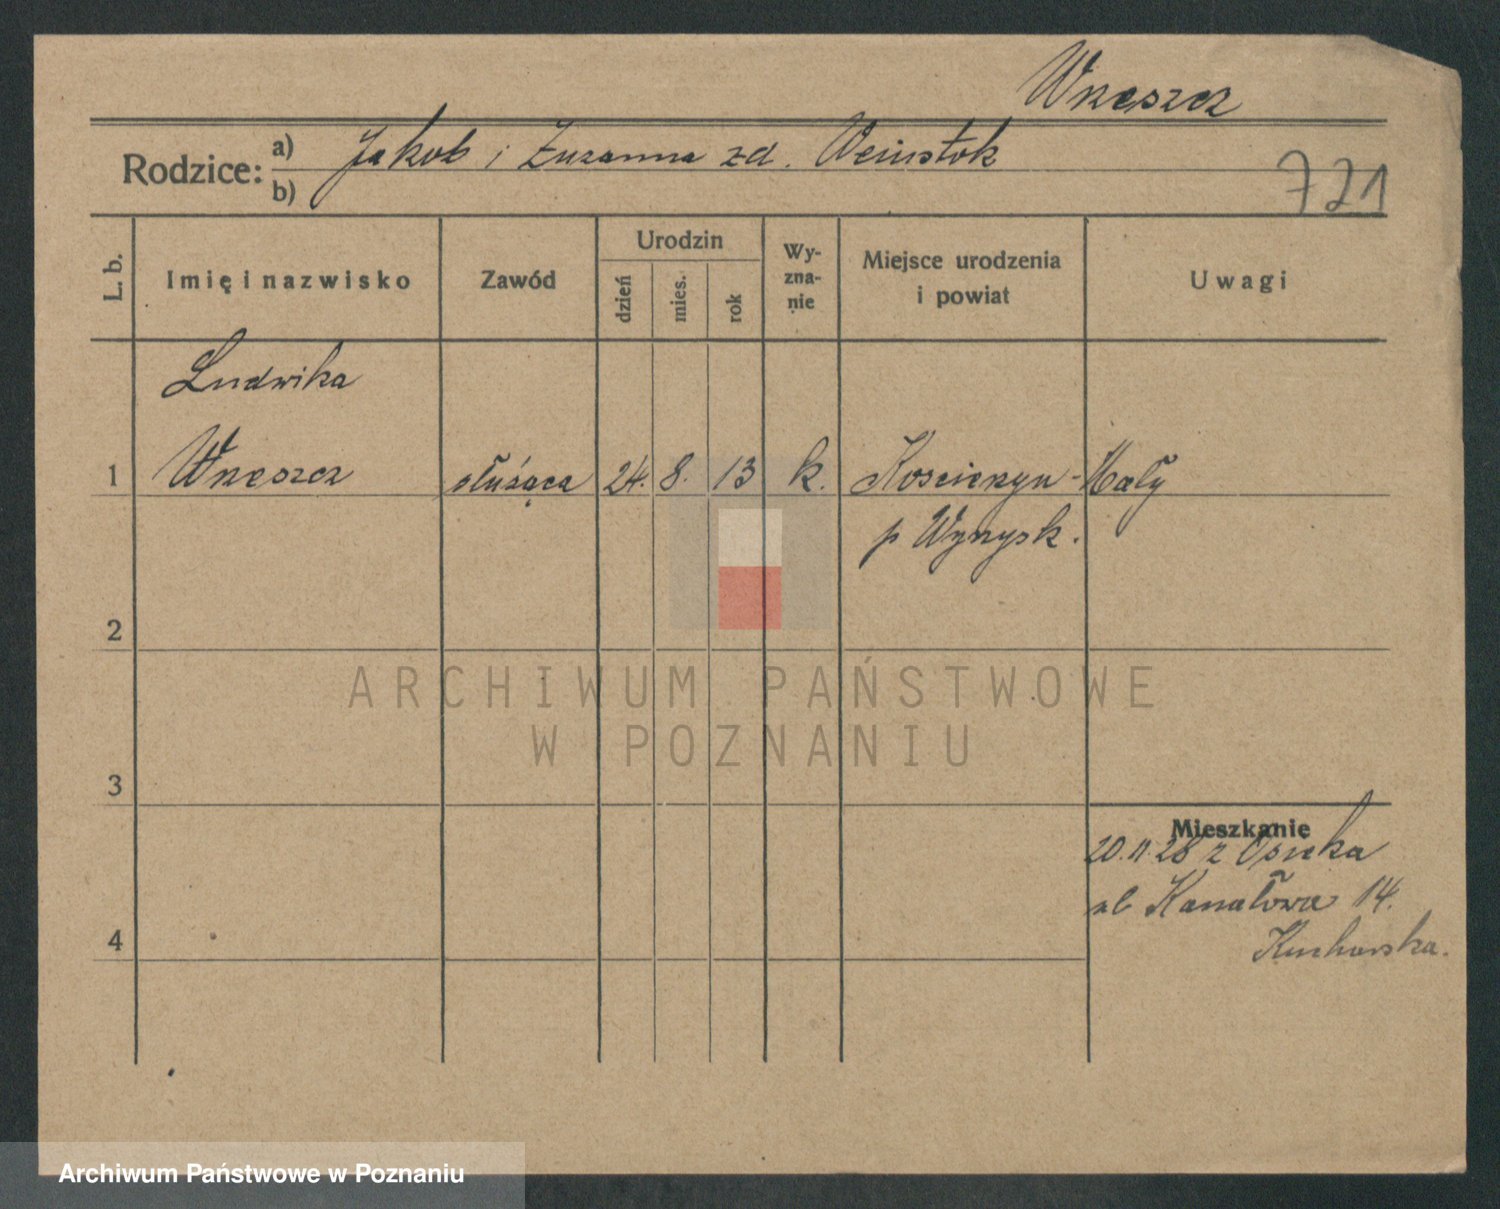 Wrzeszcz
Rodzice: a) Jakob i Zuzanna zd. Weinstok
b)
721
L. b.
Imię i nazwisko
Zawód
Urodzin
dzień
mies.
rok
Wy-
zna-
nie
Miejsce urodzenia
i powiat
Uwagi
Ludwika
1 Wrzeszcz służąca 24. 8. 13 k. Kościerzyn - Mały
p Wyrzysk.
2
ARCHIWUM PAŃSTWOWE
W POZNANIU
3
Mieszkanie
20.11.28 z Osieka
ul Kanałowa 14.
Kucharska.
4
Archiwum Państwowe w Poznaniu